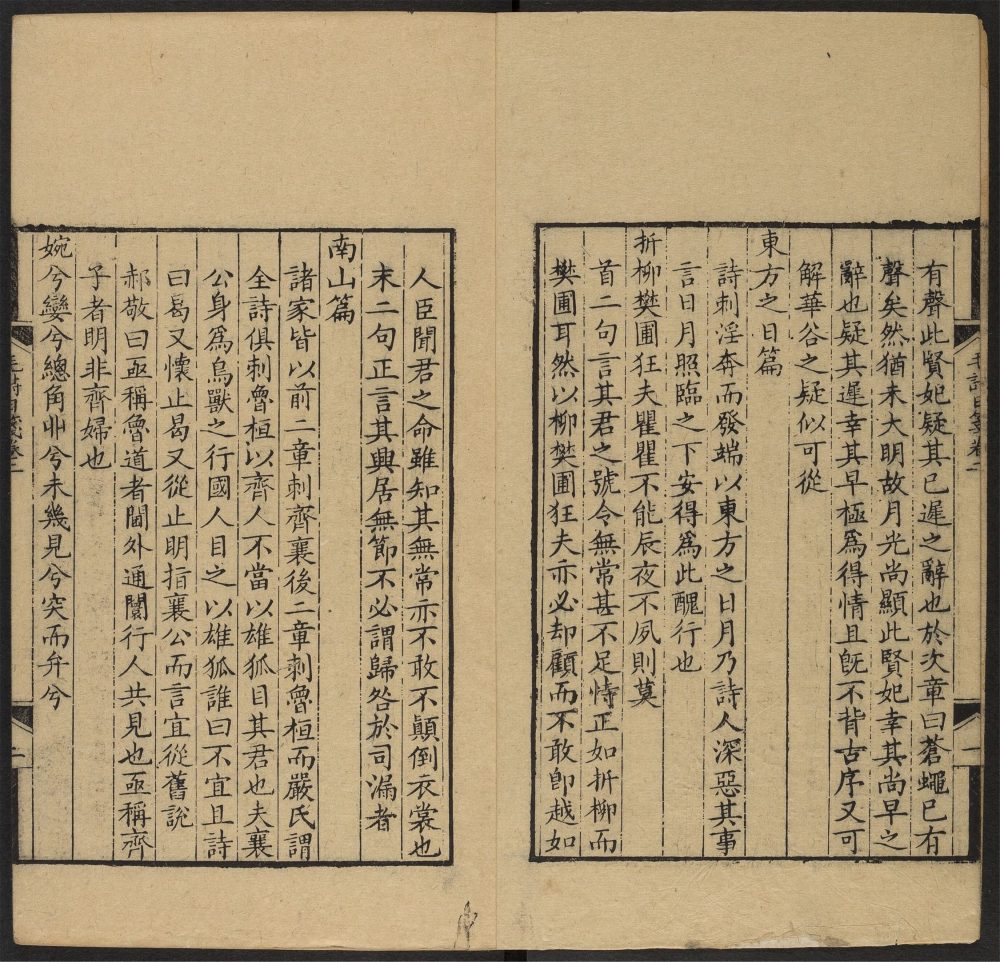 毛詩日箋卷二
一
有聲此賢妃疑其已遲之辭也於次章曰蒼蠅已有
聲矣然猶未大明故月光尚顯此賢妃幸其尚早之
辭也疑其遲幸其早極為得情且既不背古序又可
解華谷之疑似可從
東方之日篇
詩刺淫奔而發端以東方之日月乃詩人深惡其事
言日月照臨之下安得為此醜行也
折柳樊圃狂夫瞿瞿不能辰夜不夙則莫
首二句言其君之號令無常甚不足恃正如折柳而
樊圃耳然以柳樊圃狂夫亦必却顧而不敢即越如
人臣聞君之命雖知其無常亦不敢不顛倒衣裳也
末二句正言其興居無節不必謂歸咎於司漏者
南山篇
諸家皆以前二章刺齊襄後二章刺魯桓而嚴氏謂
全詩俱刺魯桓以齊人不當以雄狐目其君也夫襄
公身為鳥獸之行國人目之以雄狐誰曰不宜且詩
曰曷又懷止曷又從止明指襄公而言宜從舊說
郝敬曰亟稱魯道者閫外通闤行人共見也亟稱齊
子者明非齊婦也
婉兮孌兮總角丱兮未幾見兮突而弁兮
毛詩日箋卷二
二